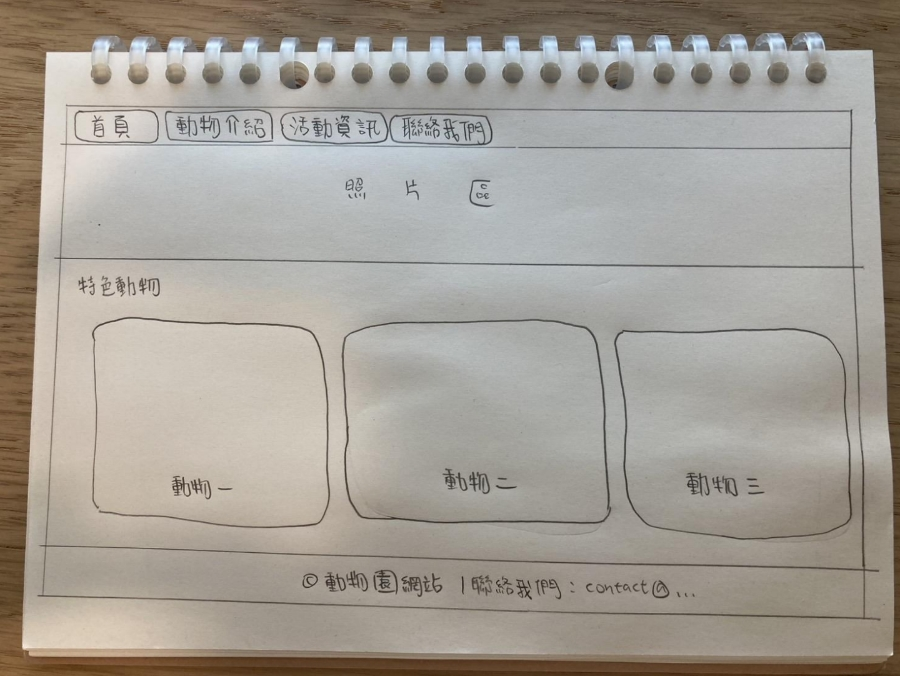 首頁 動物介紹 活動資訊 聯絡我們
照片區
特色動物
動物一 動物二 動物三
© 動物園網站 | 聯絡我們：contact@...